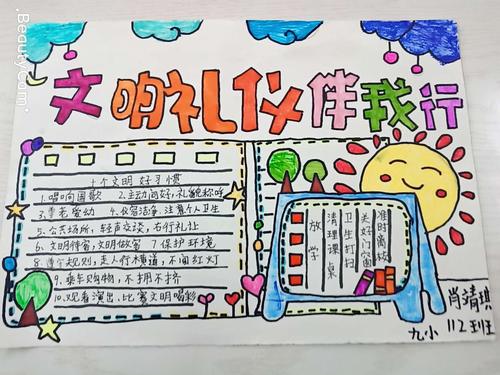 文明礼仪伴我行
十个文明好习惯
1.唱响国歌 2.主动问好,礼貌称呼
3.尊老爱幼 4.仪容洁净,注意个人卫生
5.公共场所,轻声交谈,右行礼让
6.文明待客,文明做客 7保护环境
8遵守规则,走人行横道,不闯红灯
9.乘车购物,不拥不挤
10.观看演出,比赛文明喝彩
放学
清理课桌
卫生打扫
关好门窗
准时离校
肖靖琪
九小 112班
BeautyCam.